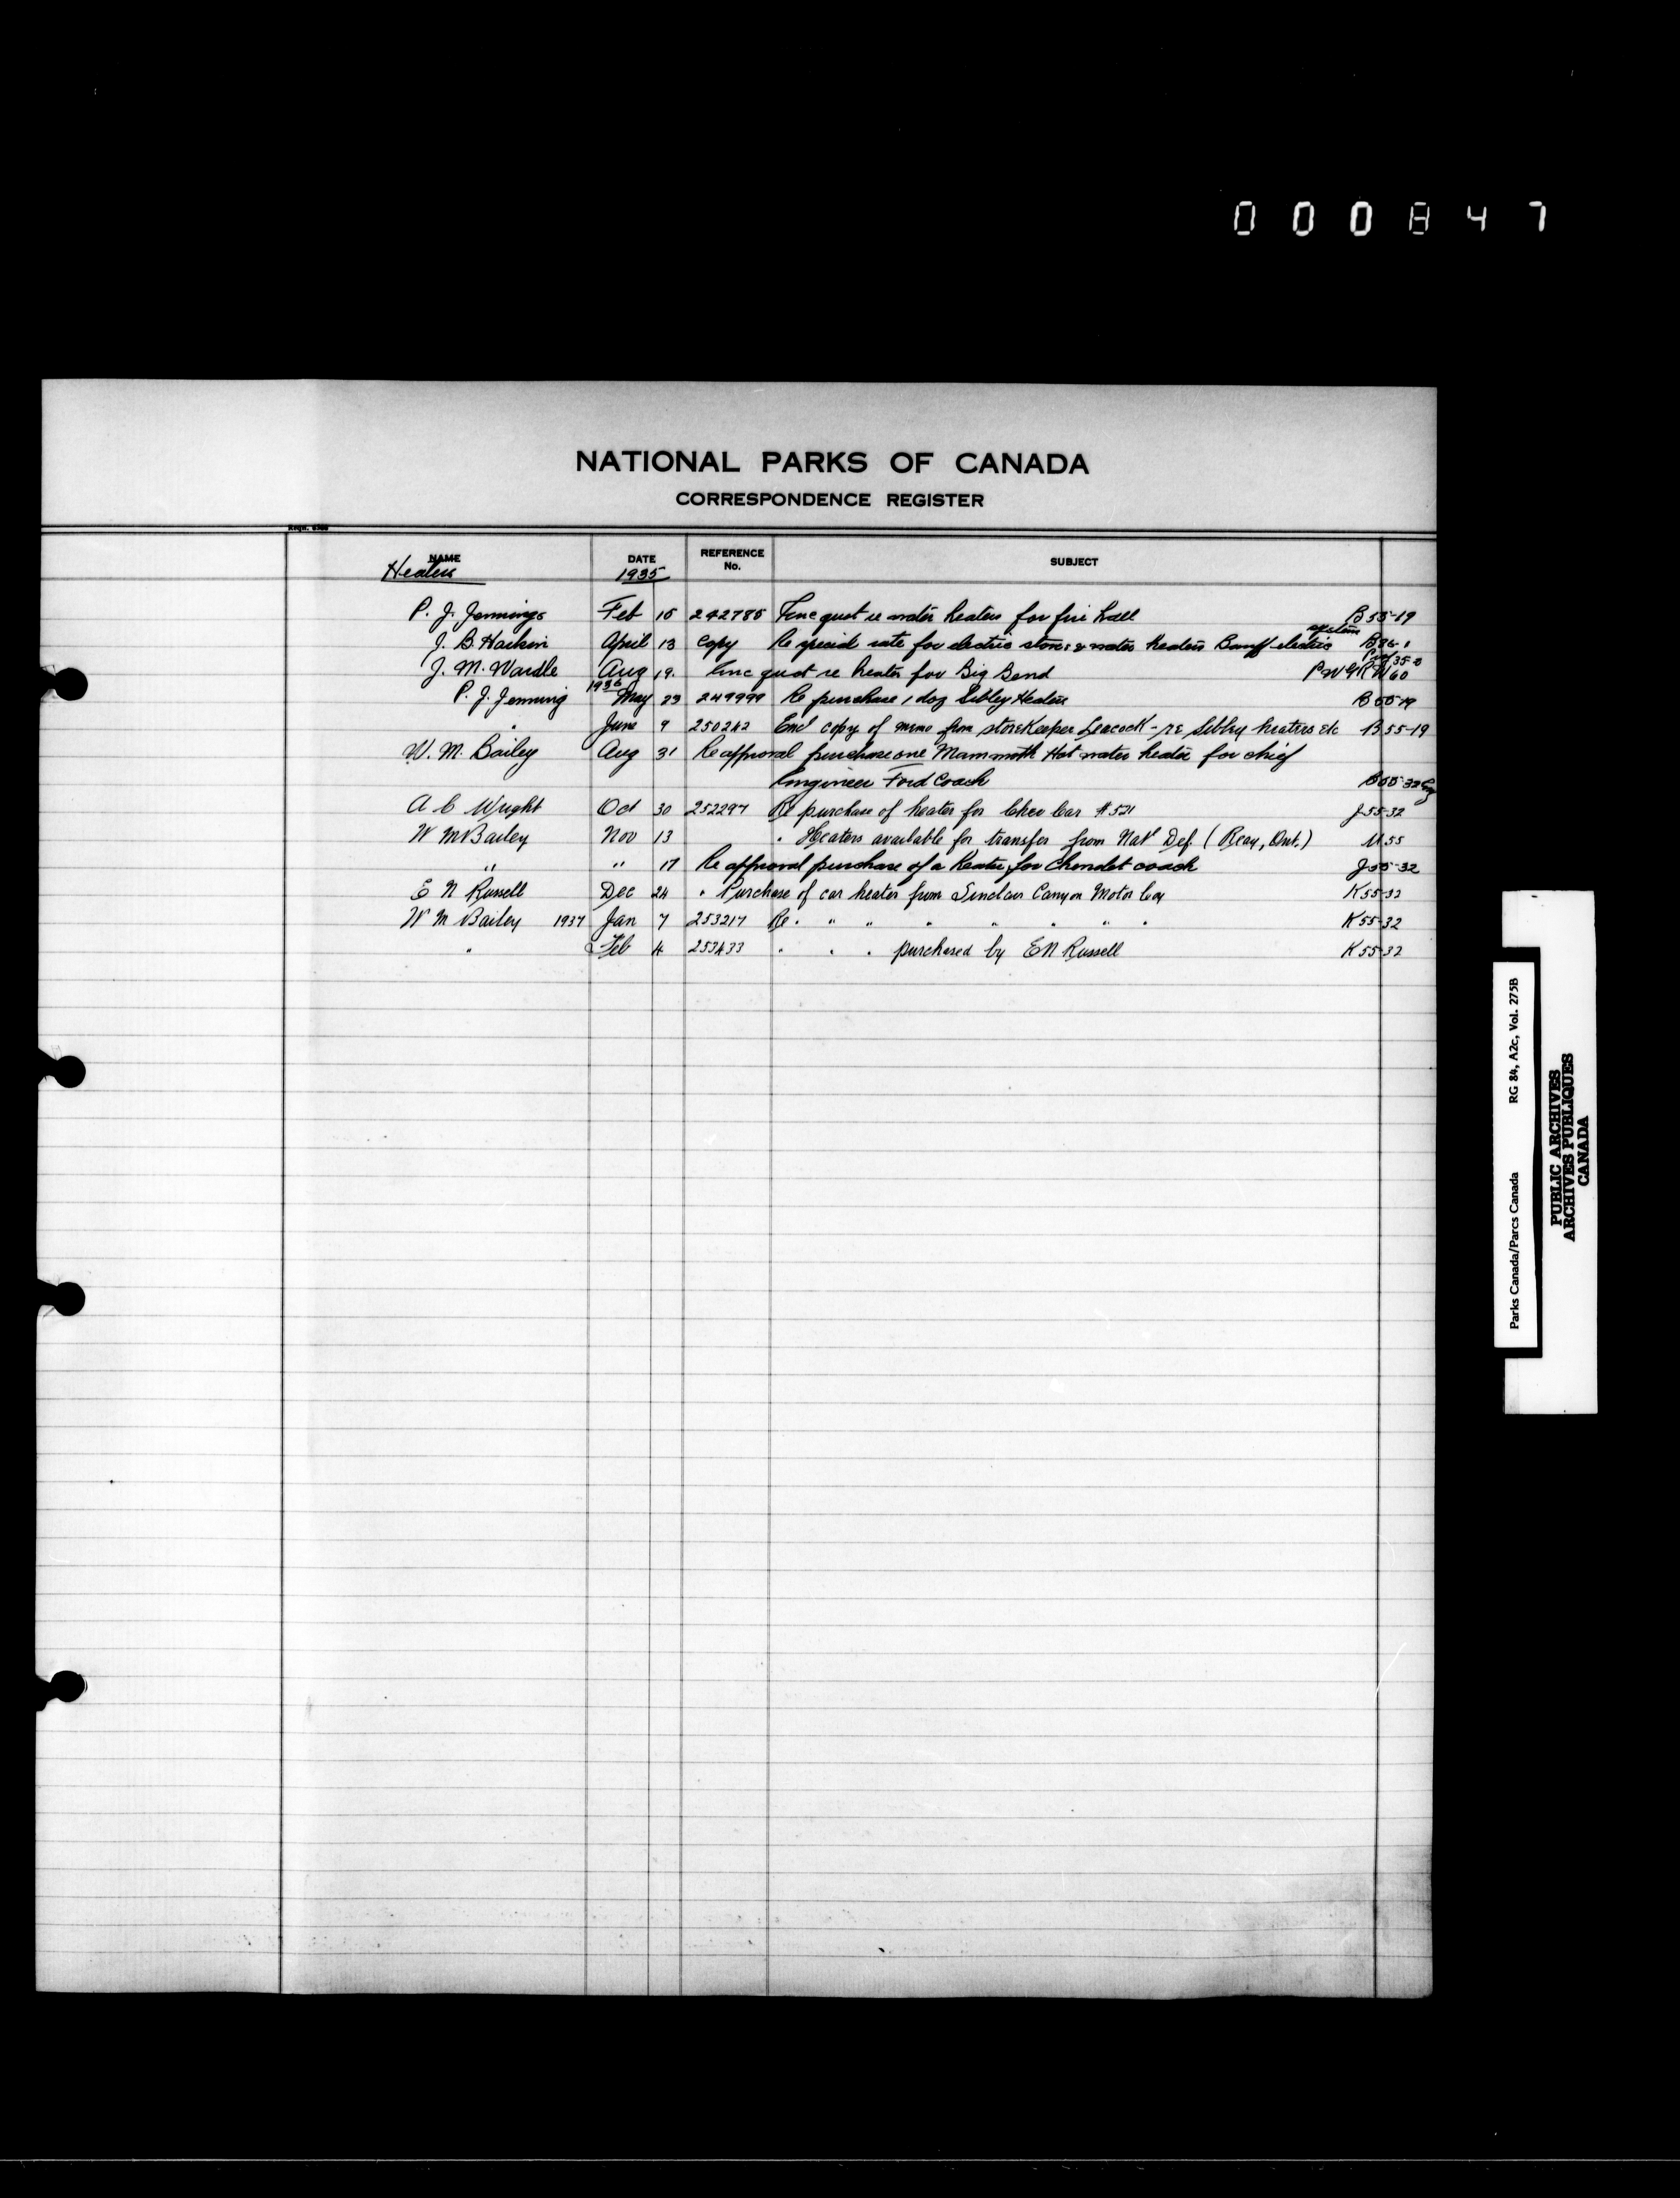 000847
NATIONAL PARKS OF CANADA
CORRESPONDENCE REGISTER
NAME DATE REFERENCE No. SUBJECT
Heaters 1935
P. J. Jennings Feb 15 242785 Finc quot re water heaters for fire hall B 55-19
system
J. B. Harkin April 13 copy Re special rate for electric stoves & water heaters Banff electric B
J. M. Wardle Aug 19. Finc quot re heater for Big Bend
1936
P. J. Jenning May 23 249999 Re purchase 1 doz Sibley Heaters B 55-19
" June 9 250242 Encl copy of memo from storekeeper Leacock - re Sibley heaters etc B 55-19
W. M. Bailey Aug 31 Re approval purchase one Mammoth Hot water heater for chief
Engineer Ford Coach B 55-32
A C Wright Oct 30 252297 Re purchase of heater for Chev Car #521 J 55-32
W M Bailey Nov 13 " Heaters available for transfer from Nat'l Def. (Reay, Ont.) U 55
" " 17 Re approval purchase of a heater for Chevrolet coach J 55-32
E N Russell Dec 24 " Purchase of car heater from Sinclair Canyon Motor Coy K 55-32
W M Bailey 1937 Jan 7 253217 Re " " " " " " " " K 55-32
" Feb 4 253433 " " " purchased by E N Russell K 55-32
Parks Canada/Parcs Canada RG 84, A2c, Vol. 275B
PUBLIC ARCHIVES
ARCHIVES PUBLIQUES
CANADA